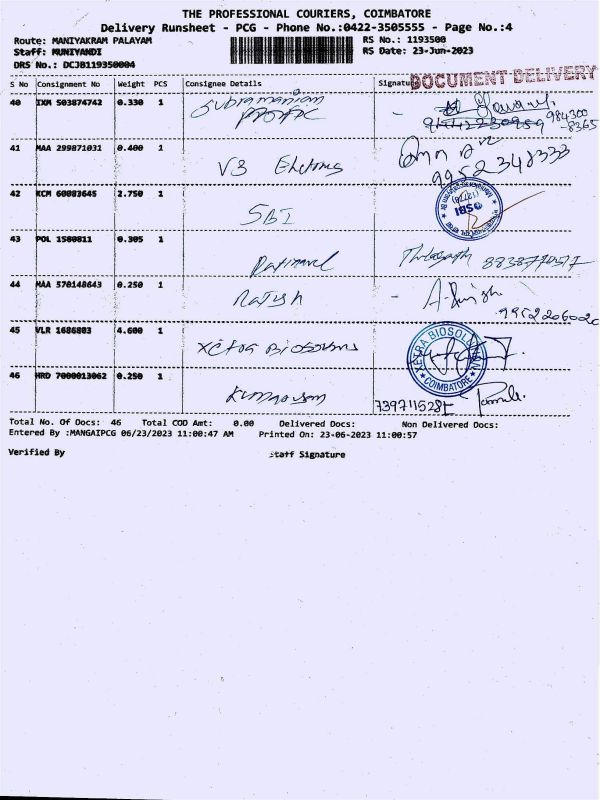 THE PROFESSIONAL COURIERS, COIMBATORE
Delivery Runsheet - PCG - Phone No.:0422-3505555 - Page No.:4
Route: MANIYAKRAM PALAYAM RS No.: 1193500
Staff: MUNIYANDI RS Date: 23-Jun-2023
DRS No.: DCJB119350004
DOCUMENT DELIVERY
S No Consignment No Weight PCS Consignee Details Signature
40 IXM 503874742 0.330 1 Subramanian
984300
-8365
41 MAA 299871031 0.400 1 V3
9952348333
42 KCM 60083645 2.750 1 SBI
SBI
43 POL 1580811 0.305 1
44 MAA 570148643 0.250 1 Ratish
45 VLR 1686803 4.600 1 Xetra
XETRA BIOSOL
COIMBATORE
46 HRD 7000013062 0.250 1
Total No. Of Docs: 46 Total COD Amt: 0.00 Delivered Docs: Non Delivered Docs:
Entered By :MANGAIPCG 06/23/2023 11:00:47 AM Printed On: 23-06-2023 11:00:57
Verified By Staff Signature